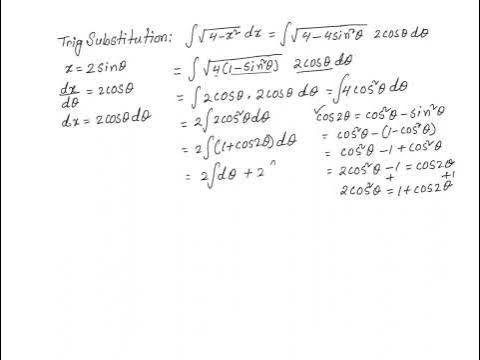 Trig Substitution: ∫√(4-x²) dx = ∫√(4-4sin²θ) 2cosθ dθ
x = 2sinθ
= ∫√(4(1-sin²θ)) 2cosθ dθ
dx/dθ = 2cosθ
= ∫2cosθ . 2cosθ dθ = ∫4cos²θ dθ
dx = 2cosθ dθ
= 2∫2cos²θ dθ
= 2∫(1+cos2θ) dθ
= 2∫dθ + 2
cos2θ = cos²θ - sin²θ
= cos²θ - (1-cos²θ)
= cos²θ - 1 + cos²θ
= 2cos²θ - 1 = cos2θ
+ +1
2cos²θ = 1 + cos2θ